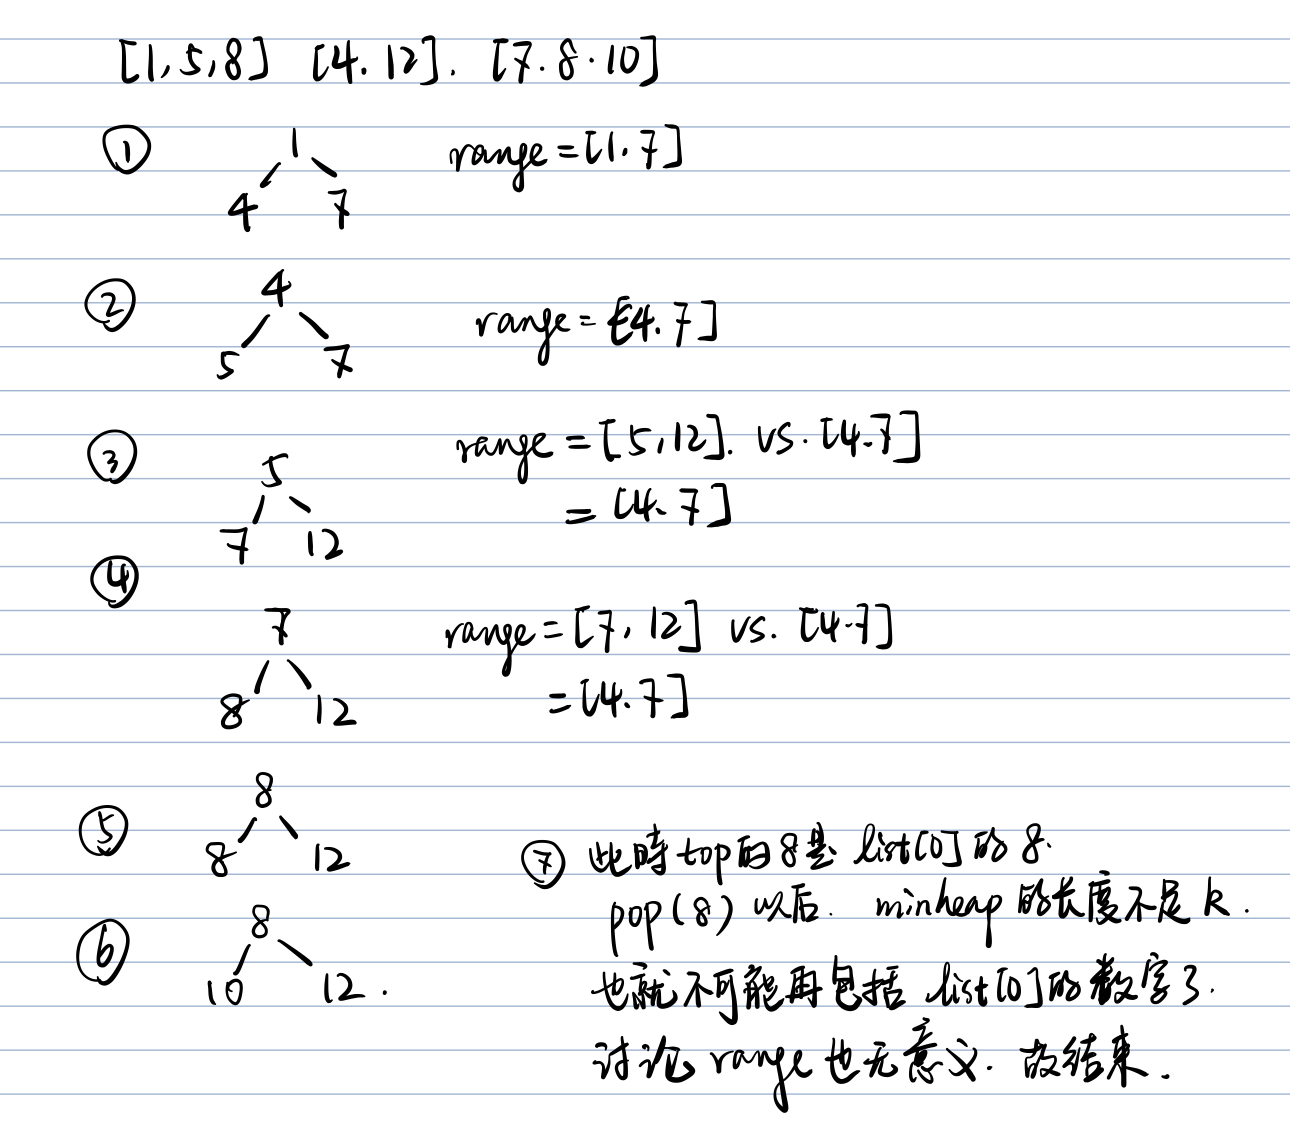 [1,5,8] [4. 12]. [7. 8. 10]
① 1 range = [1. 7]
4 7
② 4 range = [4. 7]
5 7
③ 5 range = [5,12]. vs. [4.7]
= [4. 7]
7 12
④
7 range = [7, 12] vs. [4.7]
8 12 = [4. 7]
⑤ 8
8 12
⑥ 8
10 12 .
⑦ 此时top的8是 list[0]的 8.
pop(8) 以后. minheap 的长度不足 k .
也就不可能再包括 list[0]的数字了.
讨论 range 也无意义. 故结束.